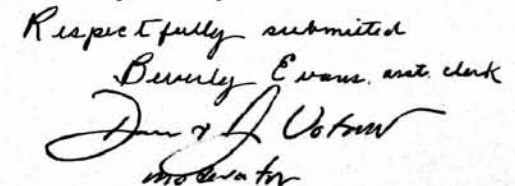 Respectfully submitted
Beverly Evans. asst. clerk
Votaw
moderator